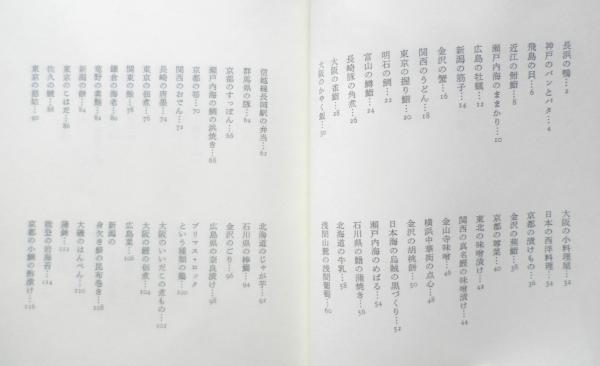 長浜の鴨…2
神戸のパンとバタ…4
飛島の貝…6
近江の鮒鮨…8
瀬戸内海のままかり…10
広島の牡蠣…12
新潟の筋子…14
金沢の蟹…16
関西のうどん…18
東京の握り鮨…20
明石の鯛…22
富山の鱒鮨…24
長崎豚の角煮…26
大阪の雀鮨…28
大阪のかやく飯…30
大阪の小料理屋…32
日本の西洋料理…34
京都の漬けもの…36
金沢の蕪鮨…38
京都の蓴菜…40
東北の味噌漬け…42
関西の真名鰹の味噌漬け…44
金山寺味噌…46
横浜中華街の点心…48
金沢の胡桃餅…50
日本海の烏賊の黒づくり…52
瀬戸内海のめばる…54
石川県の鰌の蒲焼き…56
北海道の牛乳…58
浅間山麓の浅間葡萄…60
信越線長岡駅の弁当…62
群馬県の豚…64
京都のすっぽん…66
瀬戸内海の鯛の浜焼き…68
京都の筍…70
関西のおでん…72
長崎の唐墨…74
東京の佃煮…76
関東の鮑…78
鎌倉の海老…80
竜野の素麺…82
新潟の餅…84
東京のこはだ…86
佐久の鯉…88
東京の雑煮…90
北海道のじゃが芋…92
石川県の棒鱈…94
金沢のごり…96
広島県の奈良漬け…98
プリマス・ロック
という種類の鶏…100
大阪のいいだこの煮もの…102
大阪の鰻の佃煮…104
広島菜…106
新潟の
身欠き鰊の昆布巻き…108
大磯のはんぺん…110
薄鉾…112
能登の岩海苔…114
京都の小鯛の酢漬け…116